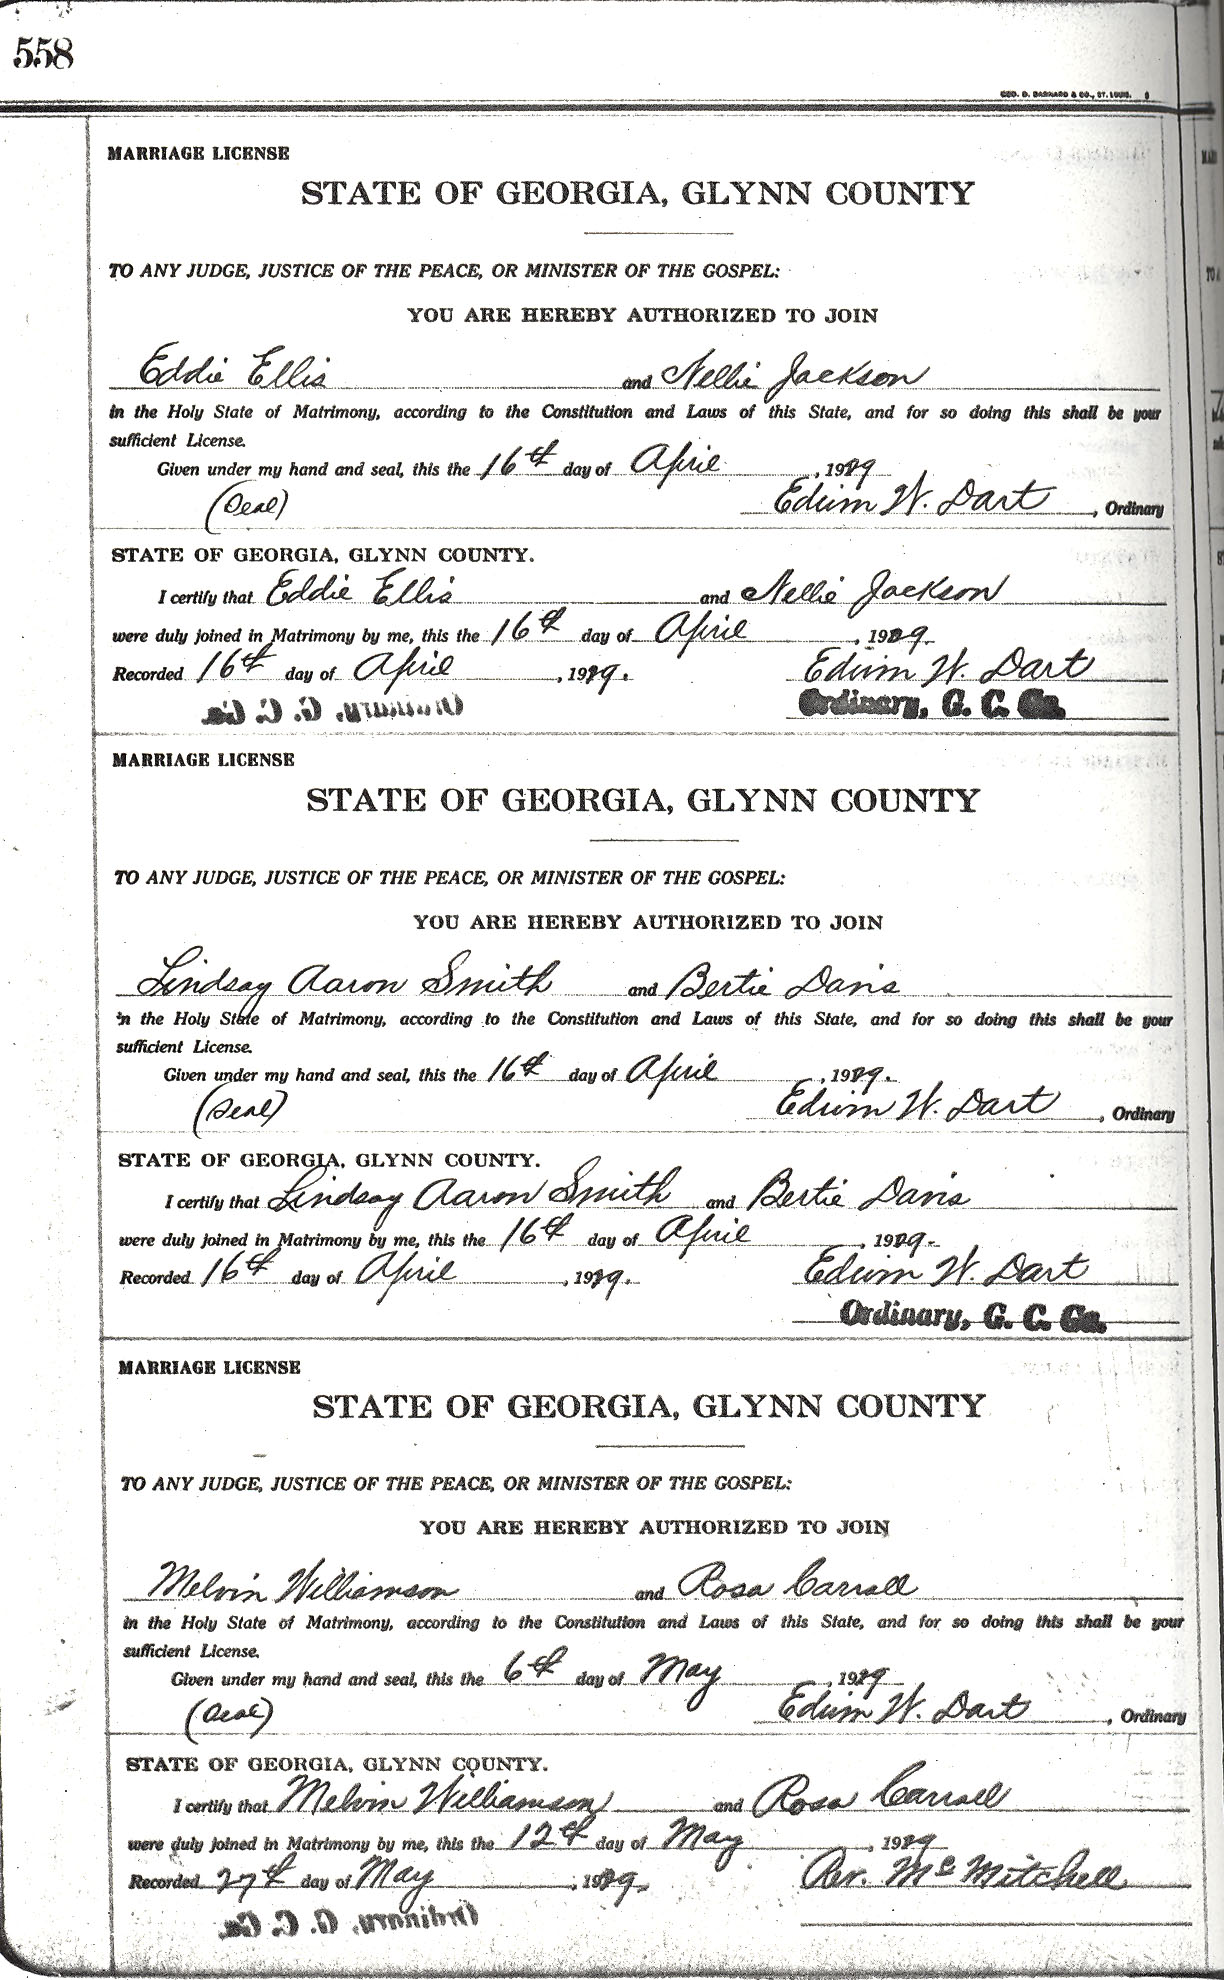 558
GEO. D. BARNARD & CO., ST. LOUIS.
MARRIAGE LICENSE
STATE OF GEORGIA, GLYNN COUNTY
TO ANY JUDGE, JUSTICE OF THE PEACE, OR MINISTER OF THE GOSPEL:
YOU ARE HEREBY AUTHORIZED TO JOIN
Eddie Ellis and Nellie Jackson
in the Holy State of Matrimony, according to the Constitution and Laws of this State, and for so doing this shall be your
sufficient License.
Given under my hand and seal, this the 16th day of April, 1929
(Seal) Edwin W. Dart, Ordinary
STATE OF GEORGIA, GLYNN COUNTY.
I certify that Eddie Ellis and Nellie Jackson
were duly joined in Matrimony by me, this the 16th day of April, 1929.
Recorded 16th day of April, 1929. Edwin W. Dart
Ordinary, G. C. Ga.
MARRIAGE LICENSE
STATE OF GEORGIA, GLYNN COUNTY
TO ANY JUDGE, JUSTICE OF THE PEACE, OR MINISTER OF THE GOSPEL:
YOU ARE HEREBY AUTHORIZED TO JOIN
Lindsay Aaron Smith and Bertie Davis
in the Holy State of Matrimony, according to the Constitution and Laws of this State, and for so doing this shall be your
sufficient License.
Given under my hand and seal, this the 16th day of April, 1929.
(Seal) Edwin W. Dart, Ordinary
STATE OF GEORGIA, GLYNN COUNTY.
I certify that Lindsay Aaron Smith and Bertie Davis
were duly joined in Matrimony by me, this the 16th day of April, 1929.
Recorded 16th day of April, 1929. Edwin W. Dart
Ordinary, G. C. Ga.
MARRIAGE LICENSE
STATE OF GEORGIA, GLYNN COUNTY
TO ANY JUDGE, JUSTICE OF THE PEACE, OR MINISTER OF THE GOSPEL:
YOU ARE HEREBY AUTHORIZED TO JOIN
Melvin Williamson and Rosa Carrall
in the Holy State of Matrimony, according to the Constitution and Laws of this State, and for so doing this shall be your
sufficient License.
Given under my hand and seal, this the 6th day of May, 1929
(Seal) Edwin W. Dart, Ordinary
STATE OF GEORGIA, GLYNN COUNTY.
I certify that Melvin Williamson and Rosa Carrall
were duly joined in Matrimony by me, this the 12th day of May, 1929
Recorded 27th day of May, 1929. Rev. Mc Mitchell